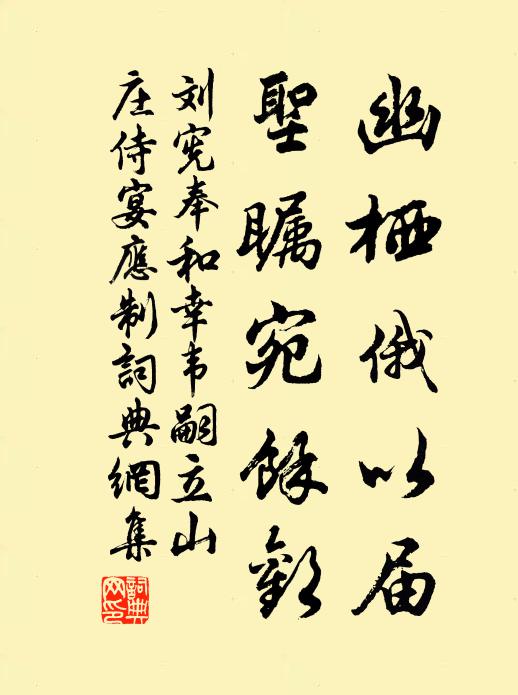 幽栖俄以届
聖瞩宛餘歡
刘宪奉和幸韦嗣立山
庄侍宴應制詞典網集
詞典网印